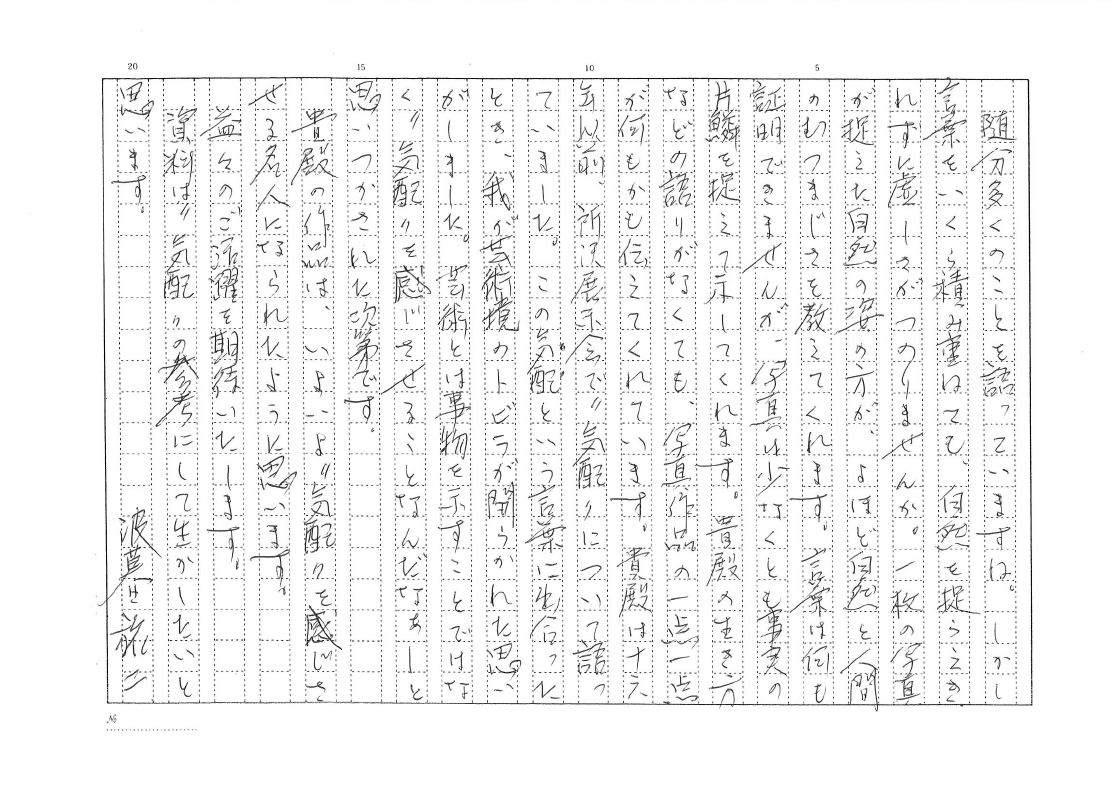 随分多くのことを語っていますね。しかし
言葉をいくら積み重ねても、自然を捉らえき
れずに虚しさがつのりませんか。一枚の写真
が捉えた自然の姿の方が、よほど自然と人間
のむつまじさを教えてくれます。言葉は何も
証明できませんが、写真は少なくとも事実の
片鱗を捉えて示してくれます。貴殿の生き方
などの語りがなくても、写真作品の一点一点
が何もかも伝えてくれています。貴殿は十六
年以前、所沢展示会で〃気配〃について語っ
ていました。この気配という言葉に出合った
とき、我が芸術境のトビラが開らかれた思い
がしました。芸術とは事物を示すことではな
く〃気配〃を感じさせることなんだなぁーと
思いつかされた次第です。
貴殿の作品は、いよいよ〃気配〃を感じさ
せる名人になられたように思います。
益々のご活躍を期待いたします。
資料は〃気配〃の参考にして生かしたいと
思います。
5
10
15
20
№